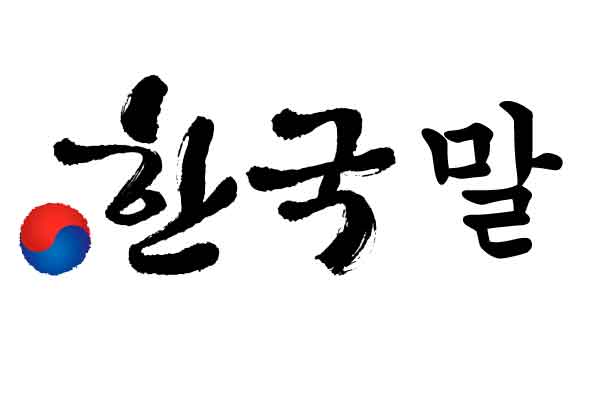 한국말